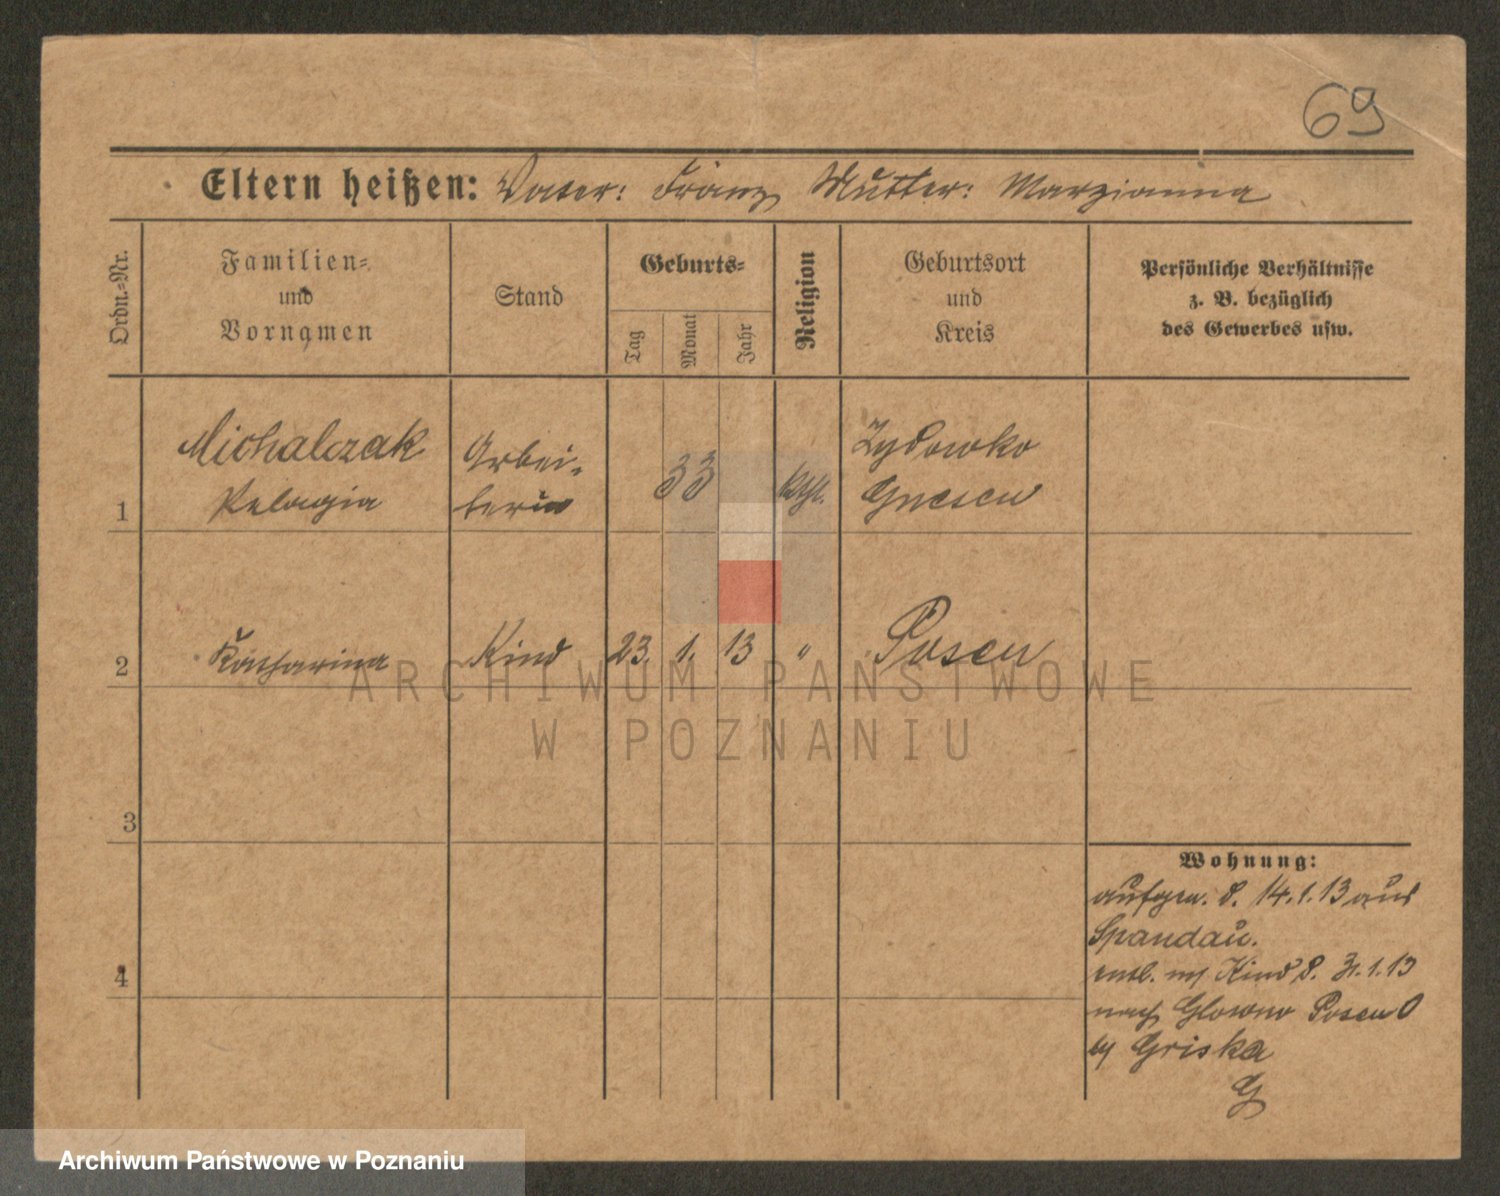 69
Eltern heißen: Vater: Franz Mutter: Marzianna
Ordn.-Nr.
Familien-
und
Vornamen
Stand
Geburts-
Tag
Monat
Jahr
Religion
Geburtsort
und
Kreis
Persönliche Verhältnisse
z. B. bezüglich
des Gewerbes usw.
1
Michalczak
Pelagia
Arbei-
terin
33
kath.
Zydowko
Gnesen
2
Katharina
Kind
23.
1.
13
"
Posen
3
4
Wohnung:
aufgen. d. 14.1.13 aus
Spandau.
entl. m Kind d. 31.1.13
nach Glowno Posen O
by Griska
G
ARCHIWUM PAŃSTWOWE
W POZNANIU
Archiwum Państwowe w Poznaniu